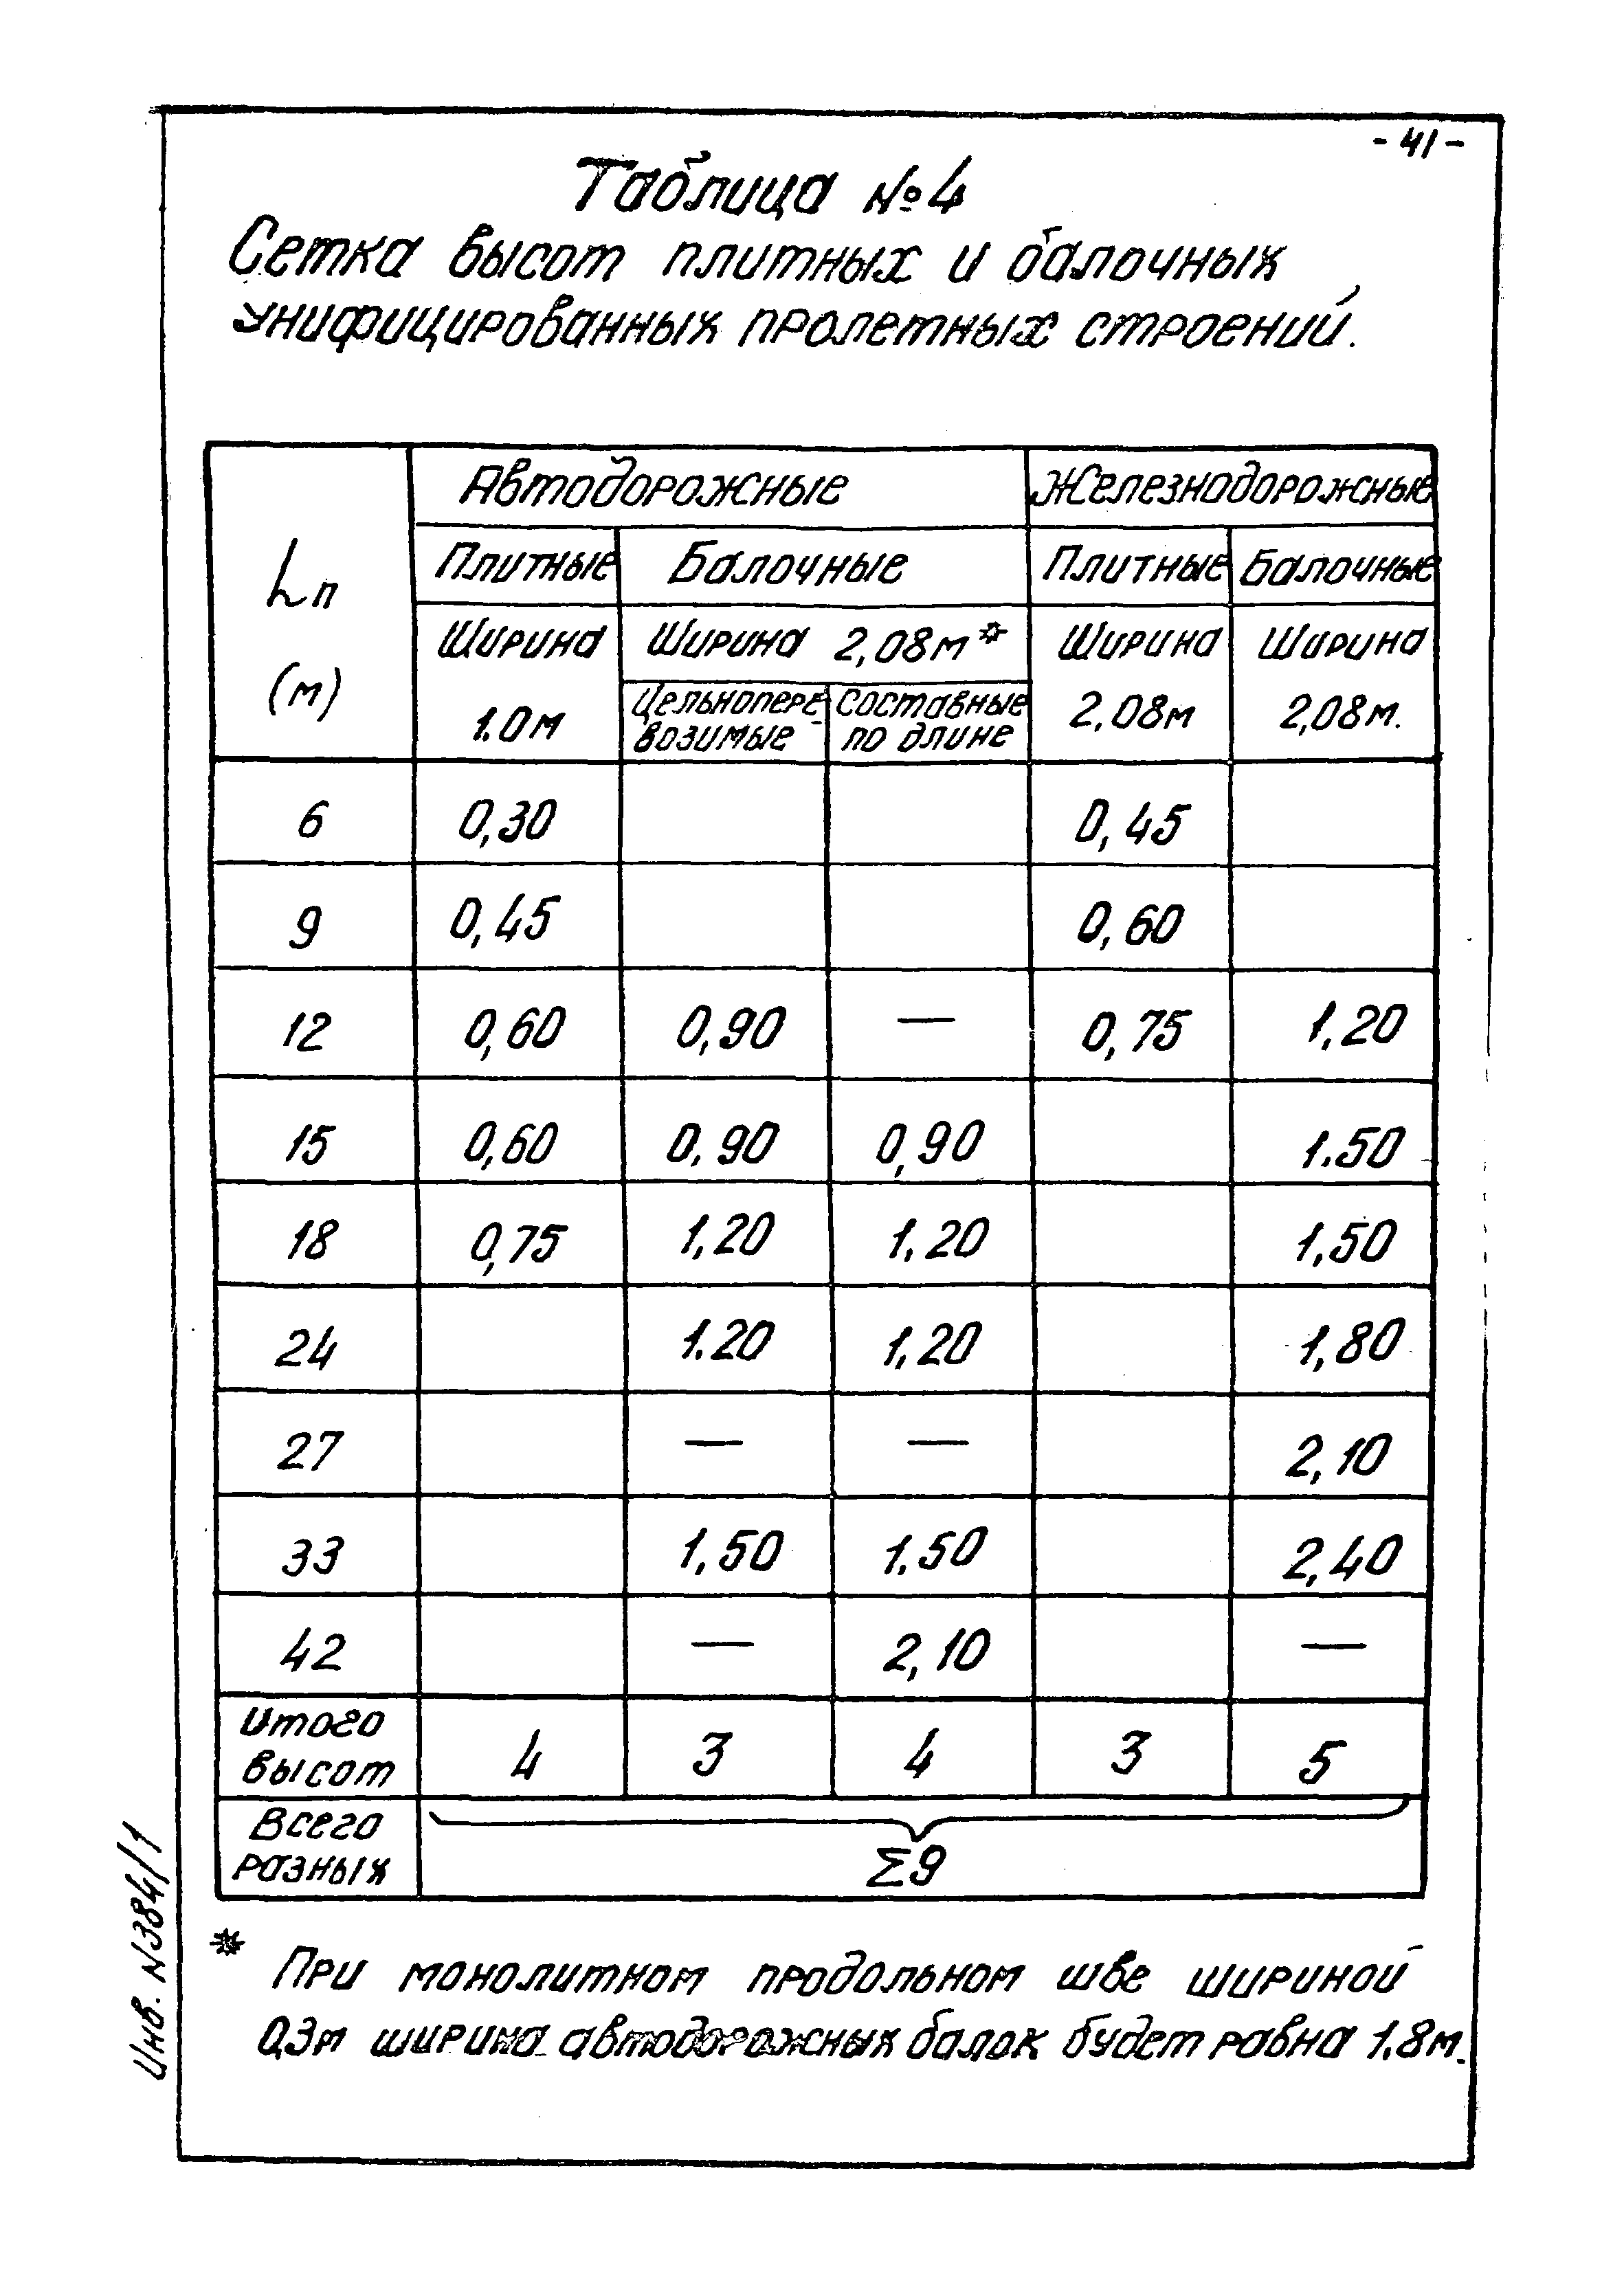 - 41 -
Таблица №4
Сетка высот плитных и балочных
унифицированных пролетных строений.
Lп
(м)
Автодорожные
Железнодорожные
Плитные
Балочные
Плитные
Балочные
Ширина
1.0м
Ширина 2,08м*
Ширина
2,08м
Ширина
2,08м.
Цельнопере-
возимые
Составные
по длине
6 0,30 0,45
9 0,45 0,60
12 0,60 0,90 — 0,75 1,20
15 0,60 0,90 0,90 1.50
18 0,75 1,20 1,20 1,50
24 1.20 1,20 1,80
27 — — 2,10
33 1,50 1.50 2,40
42 — 2,10 —
Итого
высот
4 3 4 3 5
Всего
разных
Σ9
* При монолитном продольном шве шириной
0,3м ширина автодорожных балок будет равна 1.8м.
Инв. N384/1